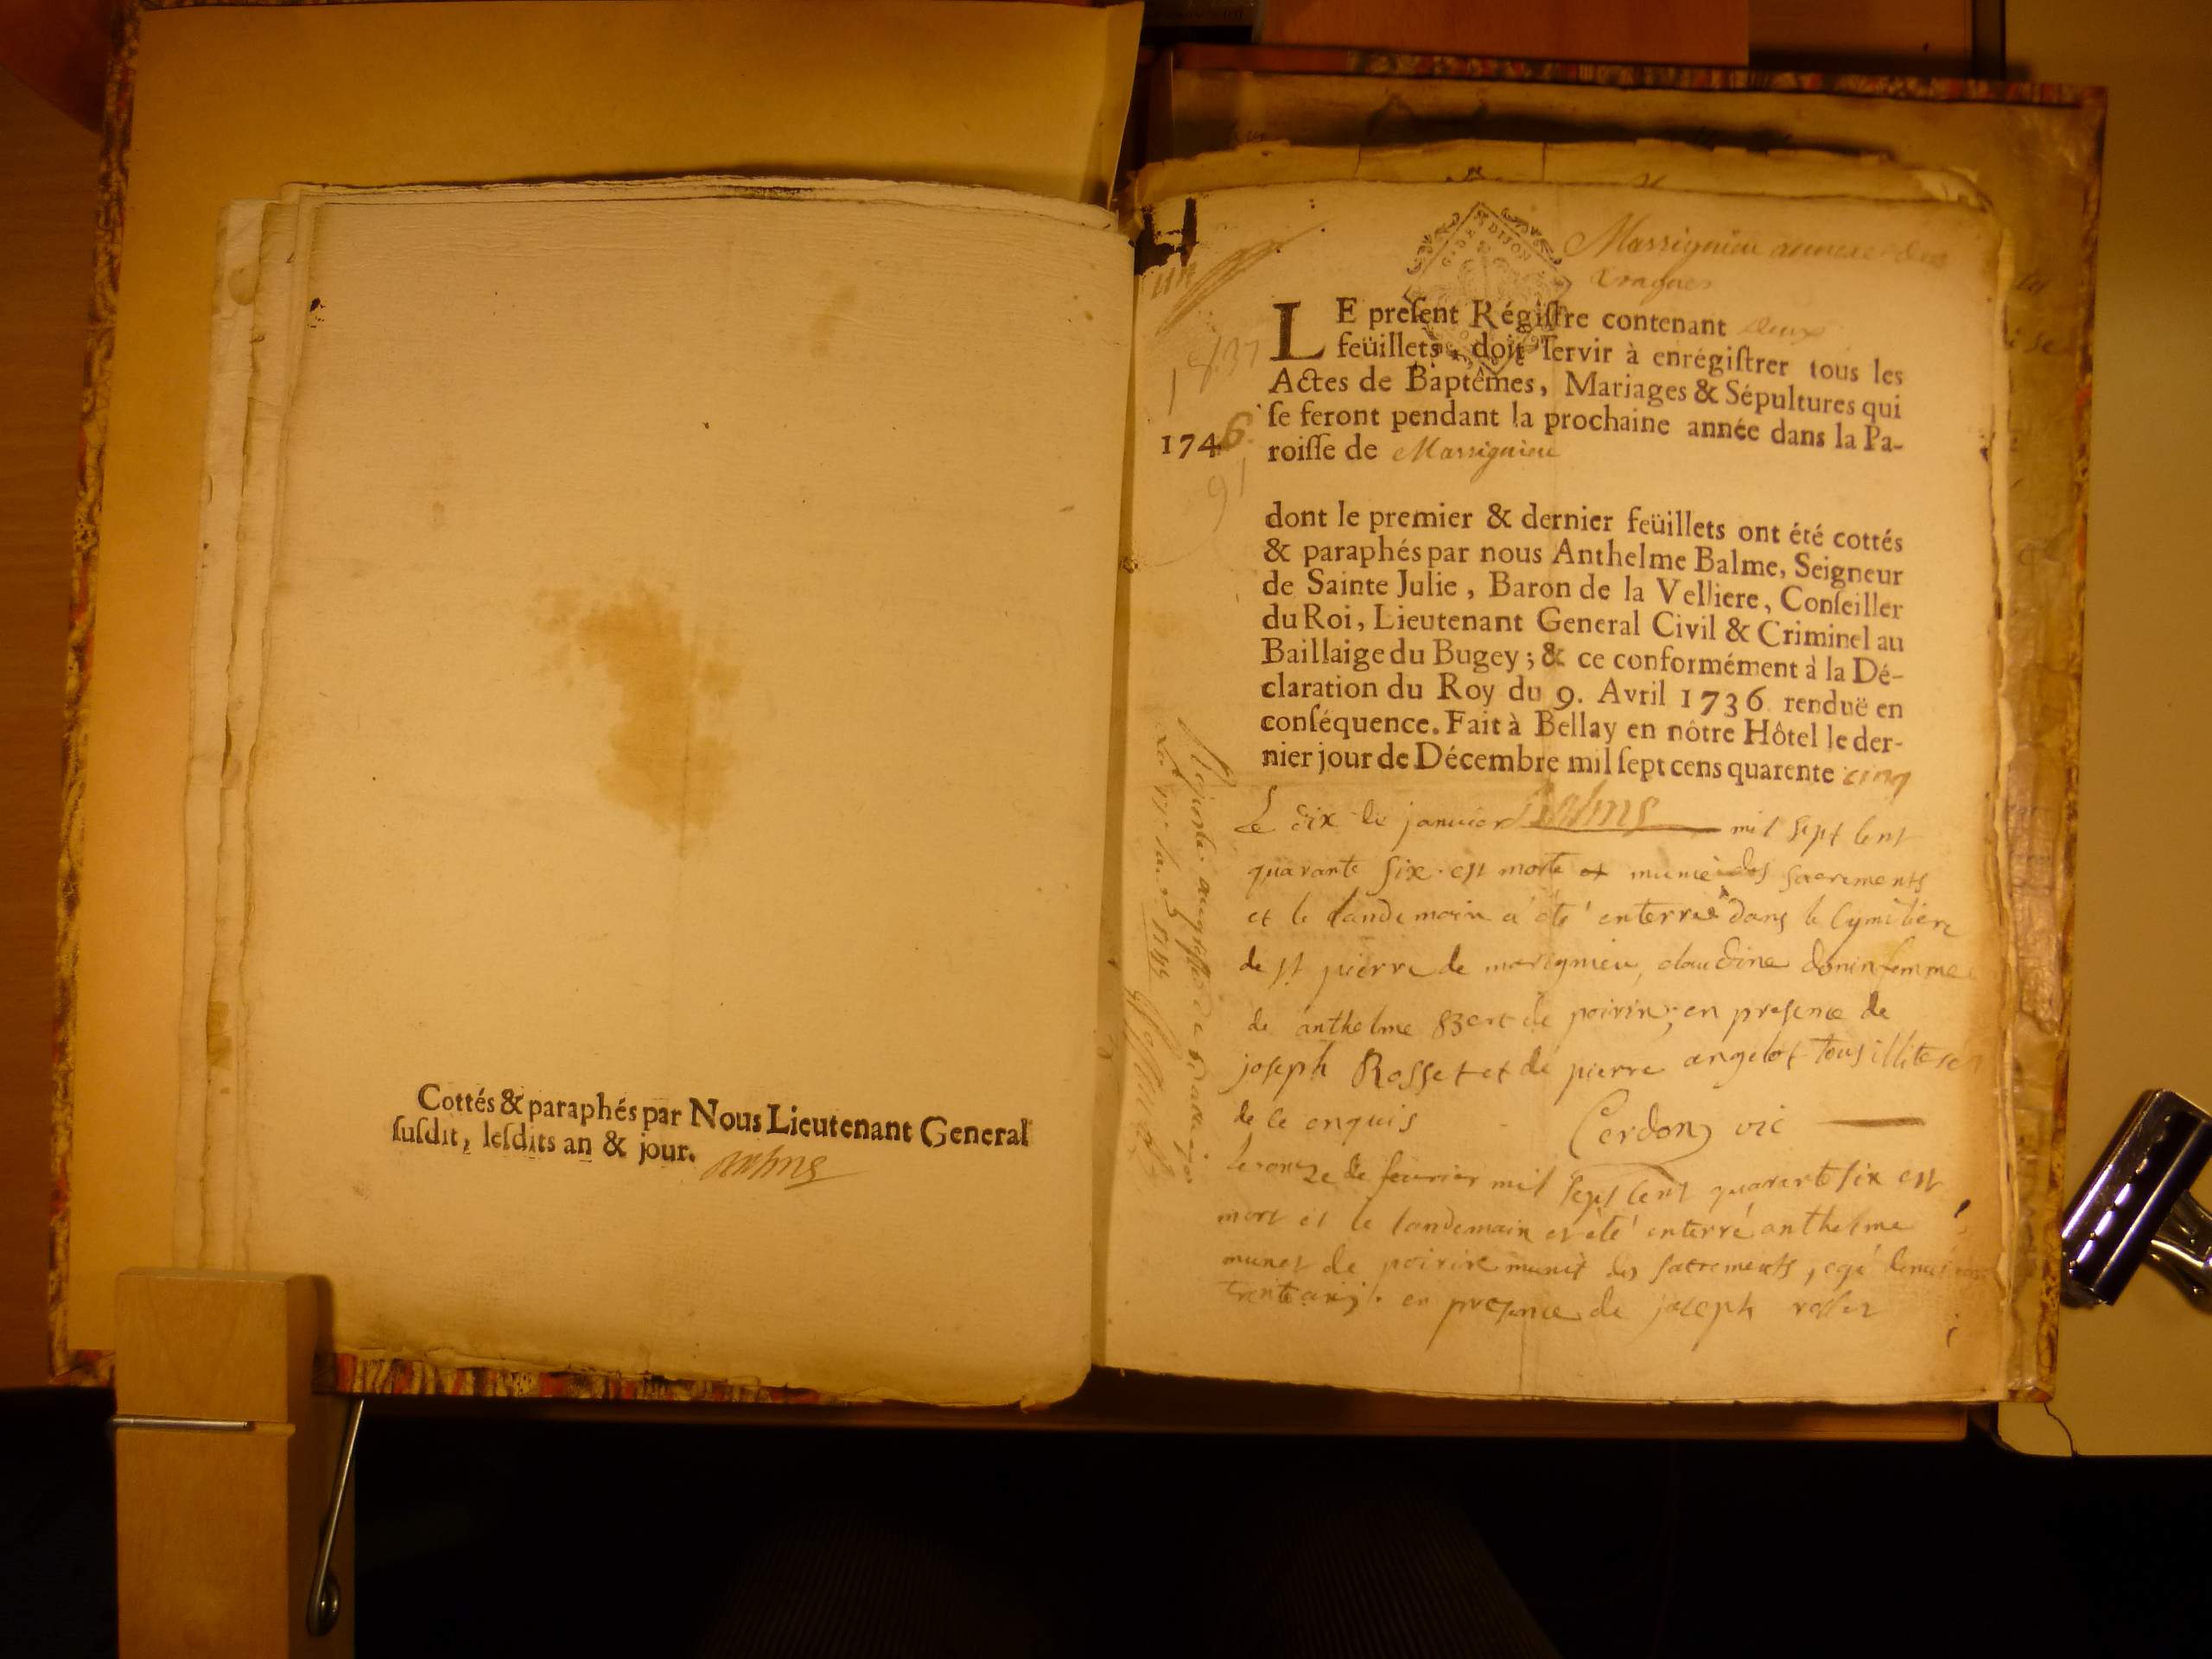 Cottés & paraphés par Nous Lieutenant General
ſuſdit, leſdits an & jour. Balme
Massignieu annexe des
un
G. DE DIJON
LE preſent Régiſtre contenant deux
feüillets, doit ſervir à enrégiſtrer tous les
Actes de Baptêmes, Mariages & Sépultures qui
ſe feront pendant la prochaine année dans la Pa-
1746. roiſſe de Massignieu
91
dont le premier & dernier feüillets ont été cottés
& paraphés par nous Anthelme Balme, Seigneur
de Sainte Julie, Baron de la Velliere, Conſeiller
du Roi, Lieutenant General Civil & Criminel au
Baillaige du Bugey; & ce conformément à la Dé-
claration du Roy du 9. Avril 1736 renduë en
conſéquence. Fait à Bellay en nôtre Hôtel le der-
nier jour de Décembre mil ſept cens quarente cinq
Balme
Le dix de janvier mil sept cent
quarante six est morte et munie des sacrements
et le landemain a été enterrée dans le cymetière
de st pierre de massignieu, claudine donin femme
de anthelme de poirin, en presence de
joseph Rosset et de pierre angelot tous illiteres
de ce enquis Cerdon vic
le onze de fevrier mil sept cent quarante six est
mort et le landemain et été enterré anthelme
munet de poirin munit des sacrements, agé
trente cinq. en presence de joseph rosset